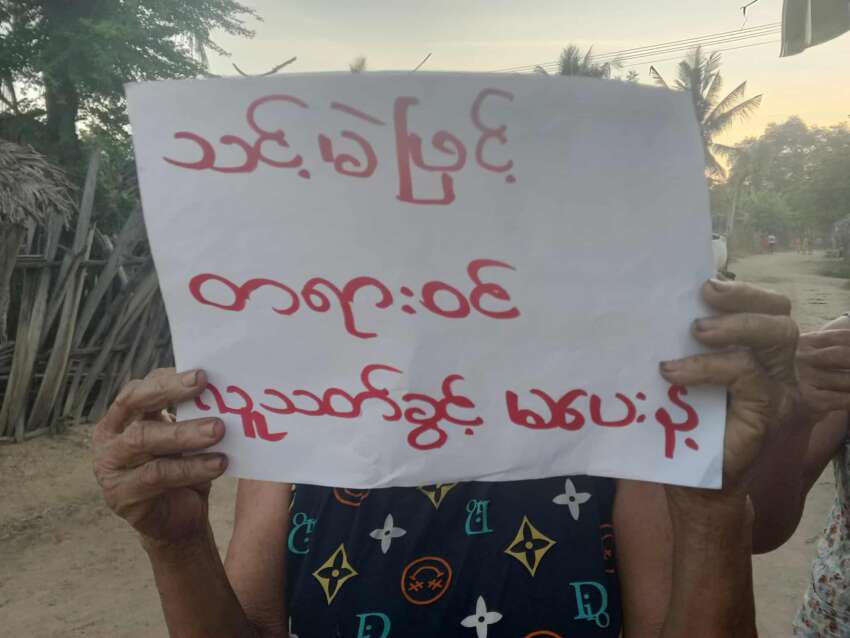 သင့်မဲဖြင့်
တရားဝင်
လူသတ်ခွင့် မပေးနဲ့